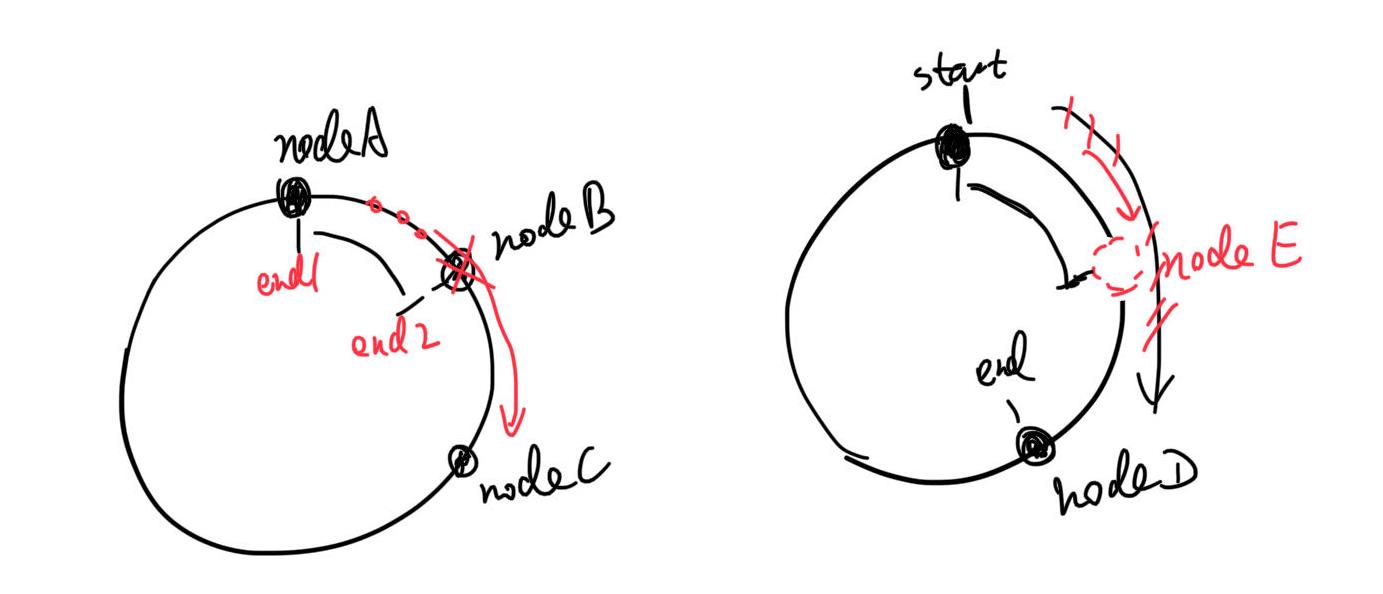 nodeA
nodeB
end1
end2
nodeC
start
node E
end
nodeD